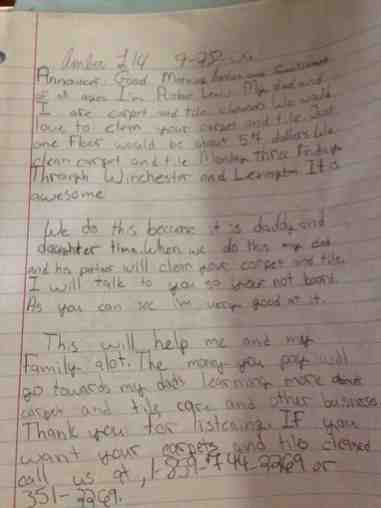 Amber 214 9-25-
Announcer: Good Morning ladies and Gentlemen
of all ages I'm Robin Lewis My dad and
I are carpet and tile cleaners We would
love to clean your carpet and tile. Just
one Floor would be about 54 dollars We
clean carpet and tile Monday Three Friday
Through Winchester and Lexington It is
awesome
We do this because it is daddy and
daughter time. When we do this my dad
and his partner will clean your carpet and tile.
I will talk to you so your not board.
As you can see I'm very good at it.
This will help me and my
Family alot. The money you pay will
go towards my dads learning more about
carpet and tile care and other business
Thank you for listening. If you
want your carpets and tile cleaned
call us at, 1-859-744-2269 or
351-2269.